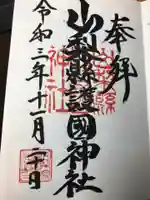 奉拝
山梨縣護國神社
令和三年十一月二十日